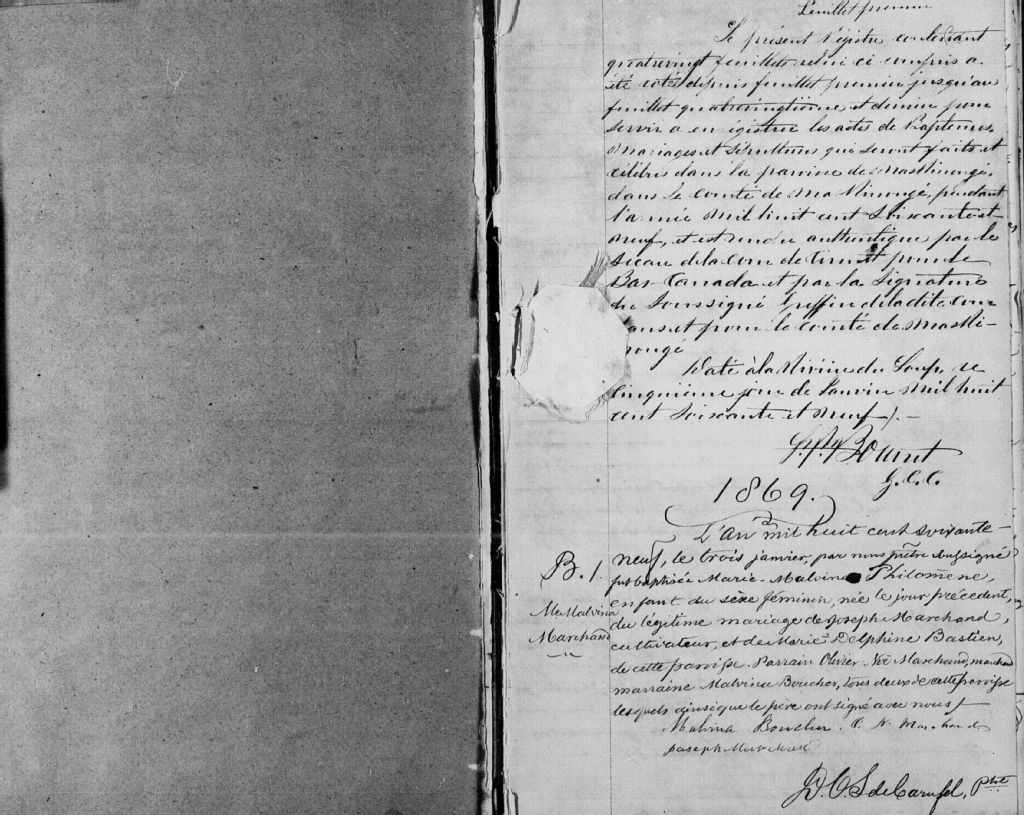 Feuillet premier
Le présent Régistre contenant
quatrevingt feuillets celui ci compris a
été coté depuis feuillet premier jusqu'au
feuillet quatrevingtième et dernier pour
servir a enrégistrer les actes de Baptemes,
Mariages et Sépultures qui seront faits et
célébrés dans la paroisse de Maskinongé,
dans le Comté de Maskinongé, pendant
l'année Mil huit cent Soixante et
neuf, et est rendu authentique par le
Sceau de la Cour de Circuit pour le
Bas-Canada et par la Signature
du Soussigné Greffier de la dite Cour
dans et pour le comté de Maski-
nongé
Daté à la Rivière du Loup, ce
Cinquième jour de Janvier Mil huit
cent Soixante et Neuf).-
G.C.C.
1869.
L'an mil huit cent soixante-
neuf, le trois janvier, par nous prêtre soussigné
B. 1.
fut baptisée Marie-Malvina Philomène,
enfant du sèxe féminin, née le jour précédent,
Mie Malvina
du légitime mariage de Joseph Marchand,
Marchand
cultivateur, et de Marie Delphine Bastien,
de cette paroisse. Parrain Olivier Noë Marchand, marchand
marraine Malvina Boucher, tous deux de cette paroisse
lesquels ainsi que le père ont signé avec nous
Malvina Boucher. O N Marchand
Joseph Marchand
D.O.S de Carufel, Ptre